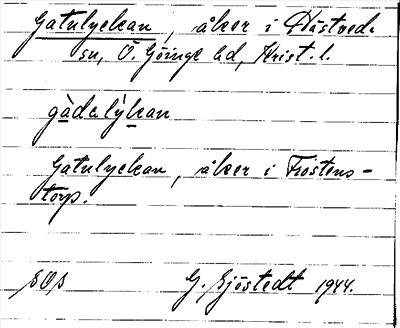 Gatulyckan, åker i Hästveda
sn, Ö. Göinge hd, Krist. l.
gàdalỳkan
Gatulyckan, åker i Frostens-
torp.
SOS
G. Sjöstedt 1944.